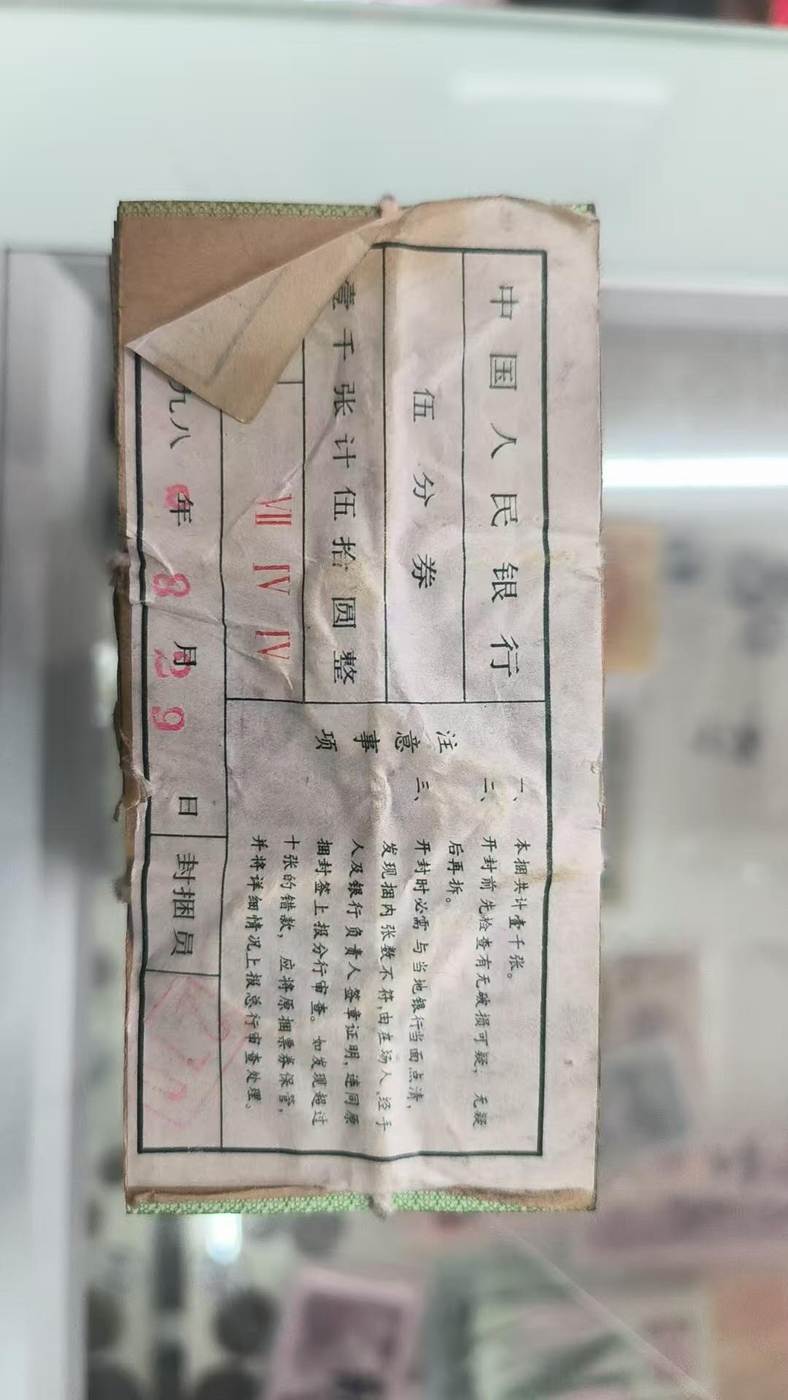 中国人民银行
伍分券
壹千张计伍拾圆整
VII IV IV
九八 年 8 月 29 日
封捆员
注意事项
一、本捆共计壹千张。
二、开封前先检查有无破损可疑，无疑
后再拆。
三、开封时必需与当地银行当面点清，
发现捆内张数不符，由在场人、经手
人及银行负责人签章证明，连同原
捆封签上报分行审查。如发现超过
十张的错款，应将原捆票券保管，
并将详细情况上报总行审查处理。